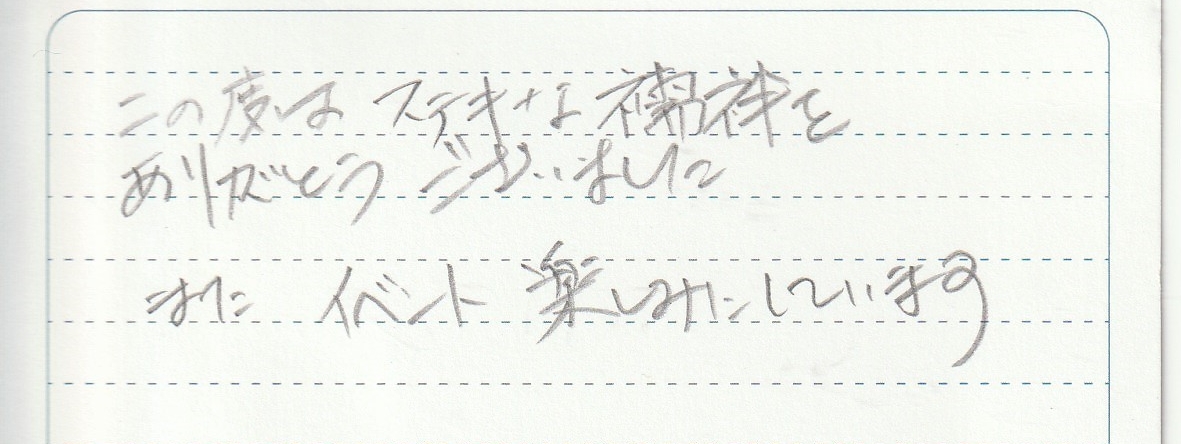 この度は ステキな 襦袢を
ありがとう ございました
また イベント 楽しみにしています